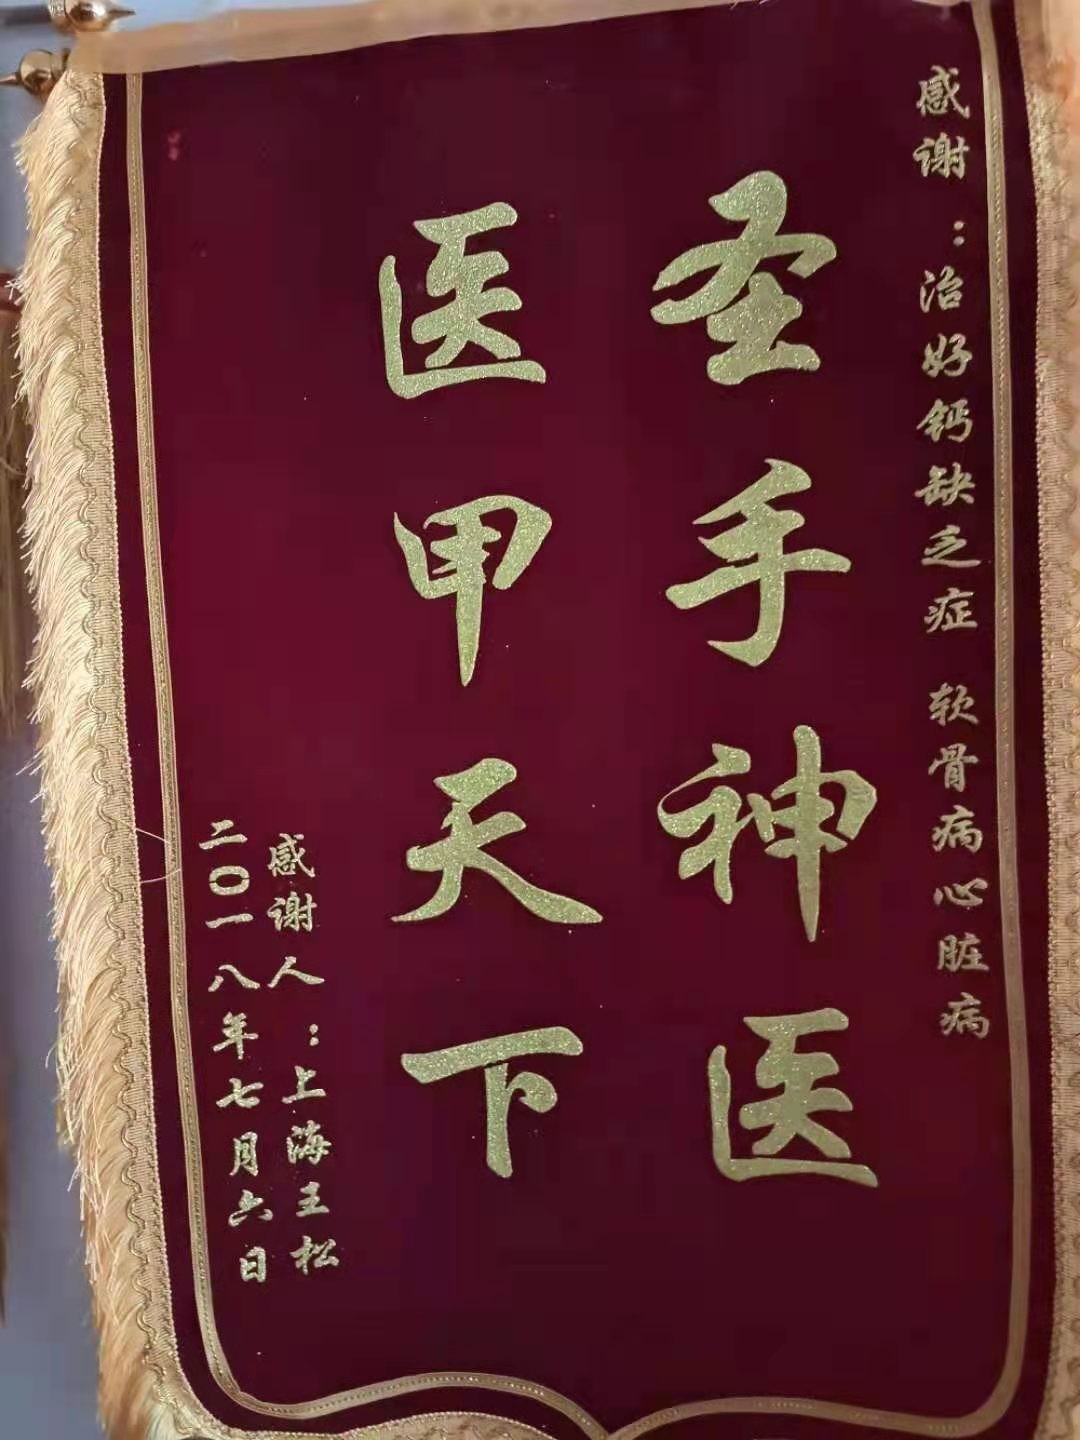 感谢：治好钙缺乏症 软骨病心脏病
圣手神医
医甲天下
感谢人：上海王松
二〇一八年七月六日